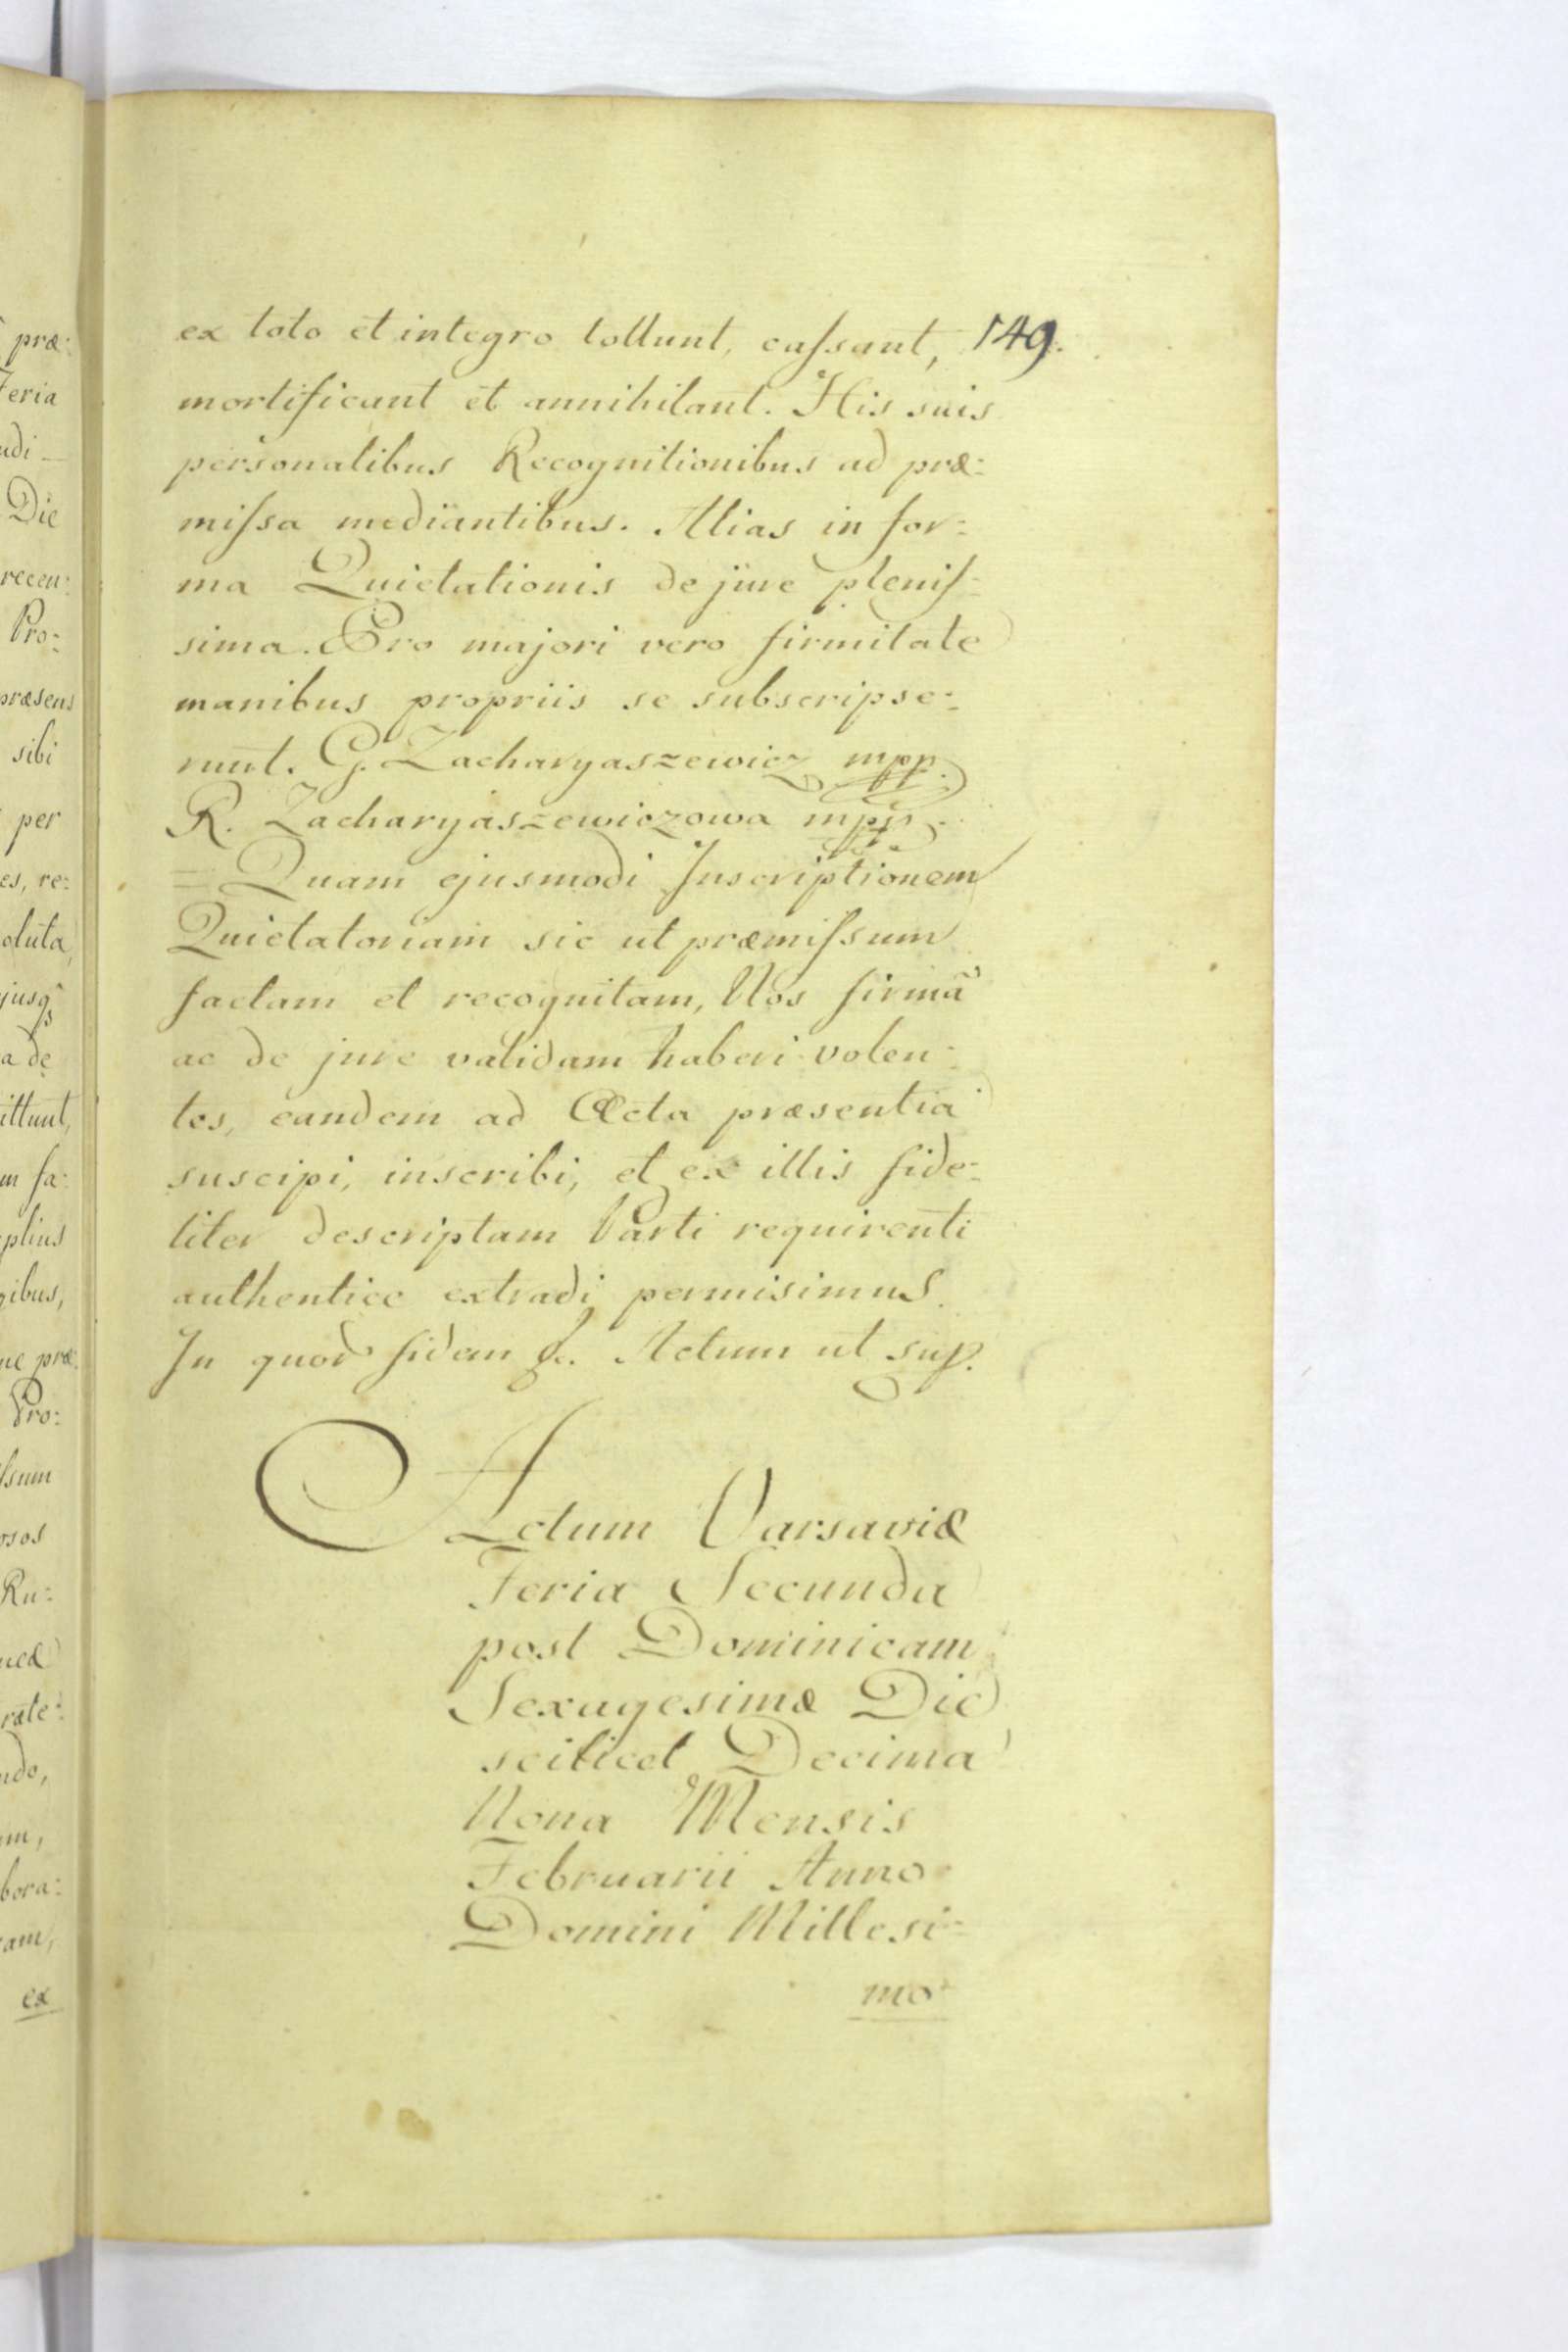 præ:
Feria
Die
recen:
Pro:
præsens
sibi
per
es, re:
oluta,
a de
ittunt,
m fa:
plius
gibus,
ne præ:
Pro:
ſsum
osos
Ru:
rate:
ndo,
bora:
ex
149.
ex toto et integro tollunt, caſsant,
mortificant et annihilant. His suis
personalibus Recognitionibus ad præ:
miſsa mediantibus. Alias in for:
ma Quietationis de jure pleniſ:
sima. Pro majori vero firmitate
manibus propriis se subscripse:
runt. G. Zacharyaszewicz mpp.
R. Zacharyaszewiczowa mpp.
= Quam ejusmodi Inscriptionem
Quietatoriam sic ut præmiſsum
factam et recognitam, Nos firmã
ac de jure validam haberi volen:
tes, eandem ad Acta præsentia
suscipi, inscribi, et ex illis fide:
liter descriptam Parti requirenti
authentice extradi permisimus.
In quor fidem &c. Actum ut sup.
Actum Varsaviæ
Feria Secunda
post Dominicam
Sexagesimæ Die
scilicet Decima
Nona Mensis
Februarii Anno
Domini Millesi:
mo